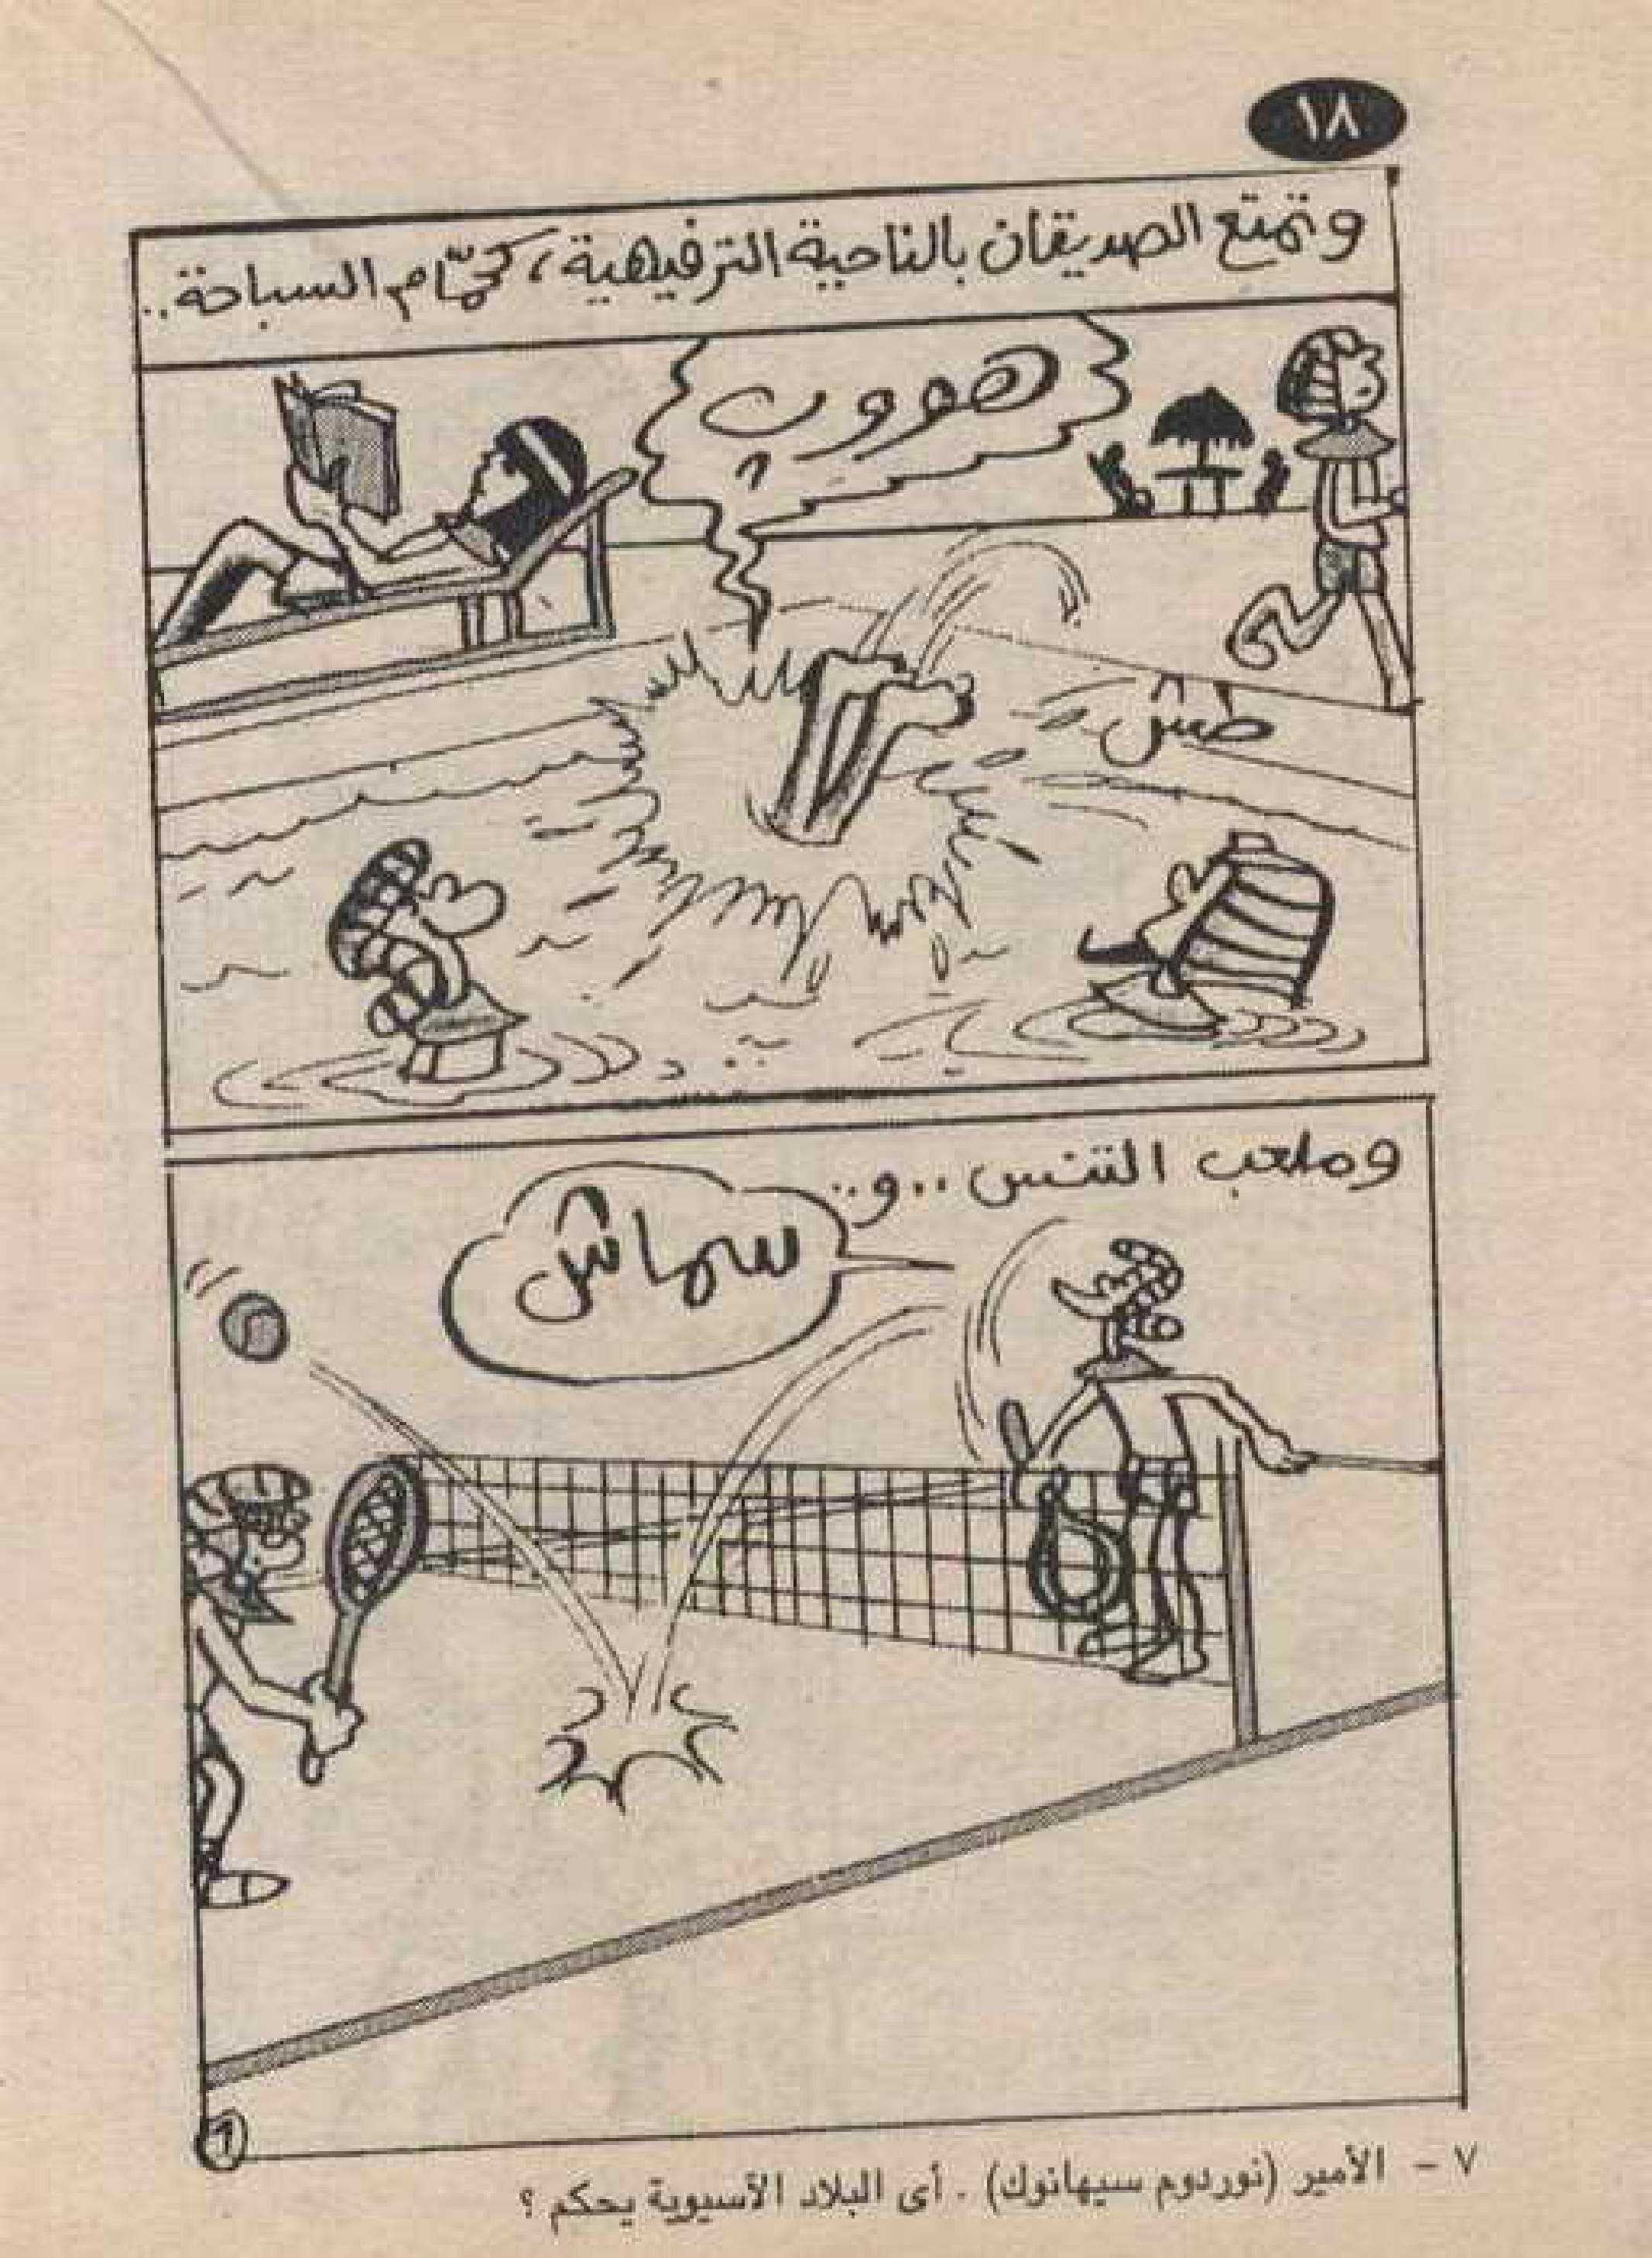 ١٨
وتمتع الصديقان بالناحية الترفيهية، كحمّام السباحة..
هووب
طش
وملعب التنس ..و..
سماش
٦
٧ - الأمير (نوردوم سيهانوك) . أى البلاد الآسيوية يحكم ؟